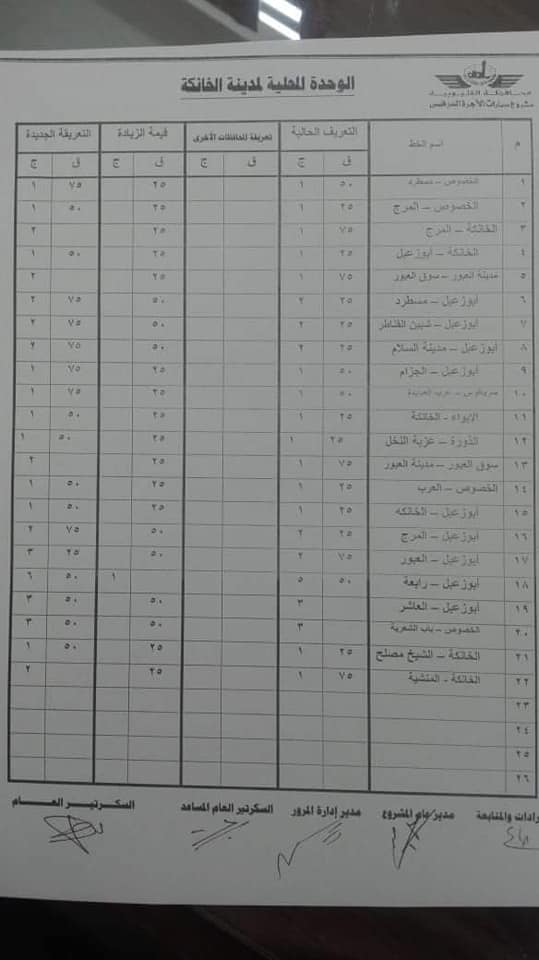 محافظة القليوبية
مشروع سيارات الأجرة السرفيس
الوحدة المحلية لمدينة الخانكة
م اسم الخط التعريف الحالية تعريفة المحافظات الأخرى قيمة الزيادة التعريفة الجديدة
ق ج ق ج ق ج ق ج
١ الخصوص – مسطرد ٥٠ ١ ٢٥ ٧٥ ١
٢ الخصوص – المرج ٢٥ ١ ٢٥ ٥٠ ١
٣ الخانكة – المرج ٧٥ ١ ٢٥ ٢
٤ الخانكة – أبوزعبل ٢٥ ١ ٢٥ ٥٠ ١
٥ مدينة العبور – سوق العبور ٧٥ ١ ٢٥ ٢
٦ أبوزعبل – مسطرد ٢٥ ٢ ٥٠ ٧٥ ٢
٧ أبوزعبل – شبين القناطر ٢٥ ٢ ٥٠ ٧٥ ٢
٨ أبوزعبل – مدينة السلام ٢٥ ٢ ٥٠ ٧٥ ٢
٩ أبوزعبل – الجزام ٥٠ ١ ٢٥ ٧٥ ١
١٠ سرياقوس – عرب ٥٠ ١ ٢٥ ٧٥ ١
١١ الايواء - الخانكة ٢٥ ١ ٢٥ ٥٠ ١
١٢ الذورة – عزبة النخل ٢٥ ١ ٢٥ ٥٠ ١
١٣ سوق العبور – مدينة العبور ٧٥ ١ ٢٥ ٢
١٤ الخصوص – العرب ٢٥ ١ ٢٥ ٥٠ ١
١٥ أبوزعبل – الخانكه ٢٥ ١ ٢٥ ٥٠ ١
١٦ أبوزعبل – المرج ٢٥ ٢ ٥٠ ٧٥ ٢
١٧ أبوزعبل – العبور ٧٥ ٢ ٥٠ ٢٥ ٣
١٨ أبوزعبل – رابعة ٥٠ ٥ ١ ٥٠ ٦
١٩ أبوزعبل – العاشر ٣ ٥٠ ٥٠ ٣
٢٠ الخصوص – باب الشعرية ٣ ٥٠ ٥٠ ٣
٢١ الخانكة – الشيخ مصلح ٢٥ ١ ٢٥ ٥٠ ١
٢٢ الخانكة - المنشية ٧٥ ١ ٢٥ ٢
٢٣
٢٤
٢٥
٢٦
رادات والمتابعة مدير عام المشروع مدير إدارة المرور السكرتير العام المساعد السكرتير العام